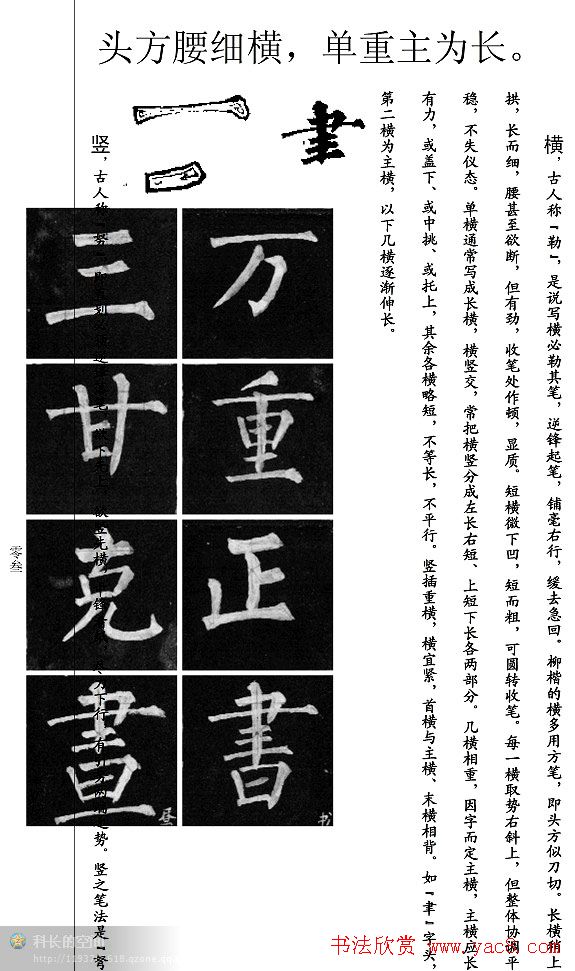 头方腰细横，单重主为长。
横，古人称「勒」，是说写横必勒其笔，逆锋起笔，铺毫右行，缓去急回。柳楷的横多用方笔，即头方似刀切。长横稍上
拱，长而细，腰甚至欲断，但有劲，收笔处作顿，显质。短横微下凹，短而粗，可圆转收笔。每一横取势右斜上，但整体协调平
稳，不失仪态。单横通常写成长横，横竖交，常把横竖分成左长右短、上短下长各两部分。几横相重，因字而定主横，主横应长
有力，或盖下、或中挑、或托上，其余各横略短，不等长，不平行。竖插重横，横宜紧，首横与主横、末横相背。如「聿」字头，
第二横为主横，以下几横逐渐伸长。
聿
万
重
正
書
书
三
廿
克
晝
昼
竖，古人称
势。竖之笔法是「弩
零叁
科长的空间
书法欣赏 www.yac8.com